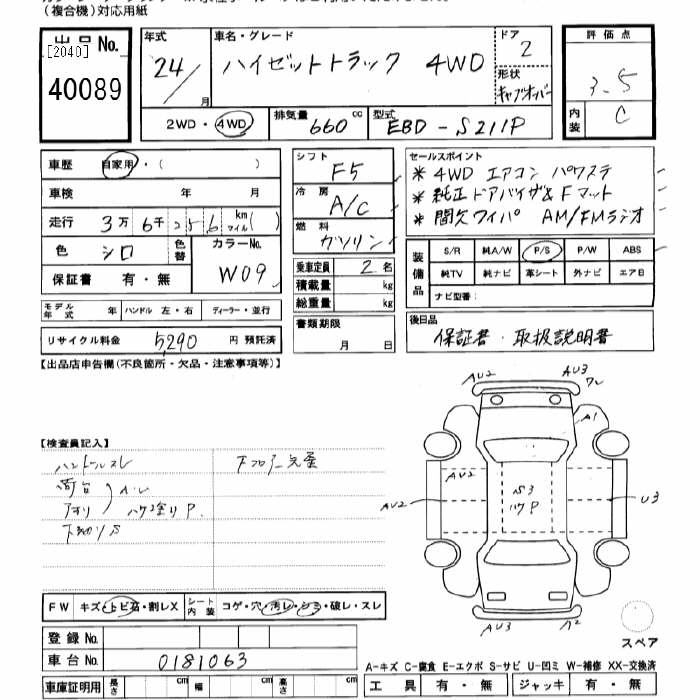 (複合機)対応用紙
出品No.
[2040]
40089
年式
24/
月
車名・グレード
ハイゼットトラック 4WD
ドア
2
形状
キャブオーバー
評価点
3.5
内装
C
2WD・4WD
排気量
660
cc
型式
EBD-S211P
車歴
自家用・( )
車検 年 月
走行 3万 6千 256 km マイル( )
色
シロ
色替
カラーNo.
W09
保証書 有・無
モデル年式 年
ハンドル 左・右
ディーラー・並行
リサイクル料金 5290 円 預託済
シフト
F5
冷房
A/C
燃料
ガソリン
乗車定員 2 名
積載量 kg
総重量 kg
書類期限
月 日
セールスポイント
* 4WD エアコン パワステ
* 純正ドアバイザ&Fマット
* 間欠ワイパ AM/FMラジオ
装備品
S/R 純A/W P/S P/W ABS
純TV 純ナビ 革シート 外ナビ エアB
ナビ型番:
後日品
保証書・取扱説明書
【出品店申告欄(不良箇所・欠品・注意事項等)】
【検査員記入】
ハンドルスレ
下フロアー欠歪
荷台
アオリ
A・U
ハケ塗りP.
下廻りS
AU2
AU3
A1
AU2
AU2
S3
ハケP
U3
AU3
A2
スペア
FW キズ・トビ石・割レX
シート内装 コゲ・穴・汚レ・シミ・破レ・スレ
登録No.
車台No. 0181063
車庫証明用 長さ cm 幅 cm 高さ cm
A-キズ C-腐食 E-エクボ S-サビ U-凹ミ W-補修 XX-交換済
工具 有・無 ジャッキ 有・無